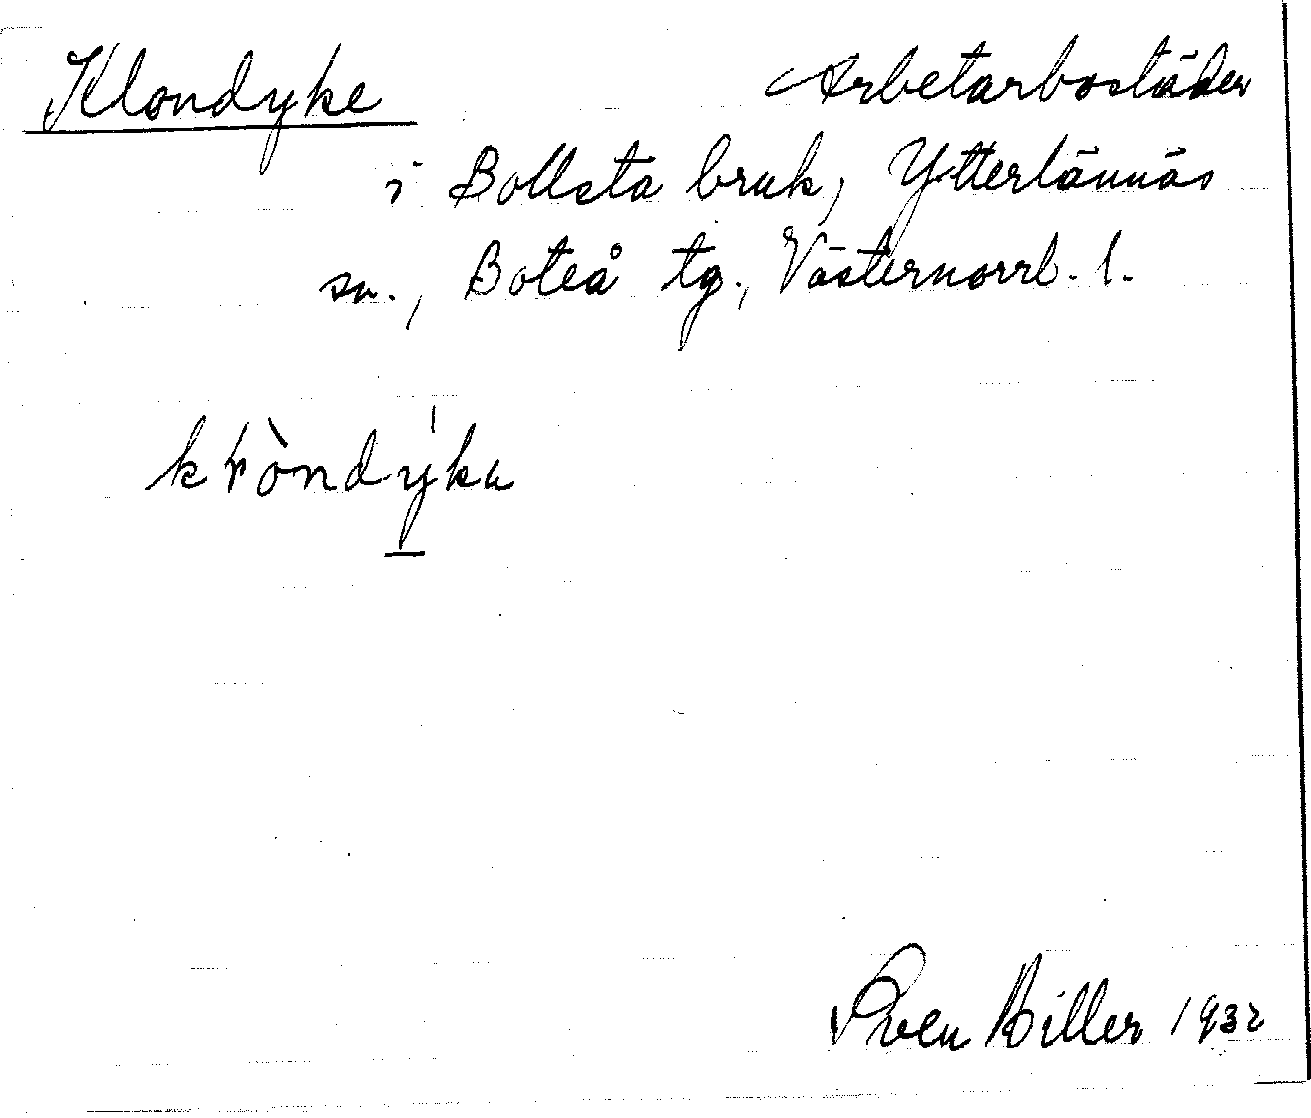 Klondyke Arbetarbostäder
i Bollsta bruk, Ytterlännäs
sn., Boteå tg., Västernorrl. l.
Sven Hiller 1932